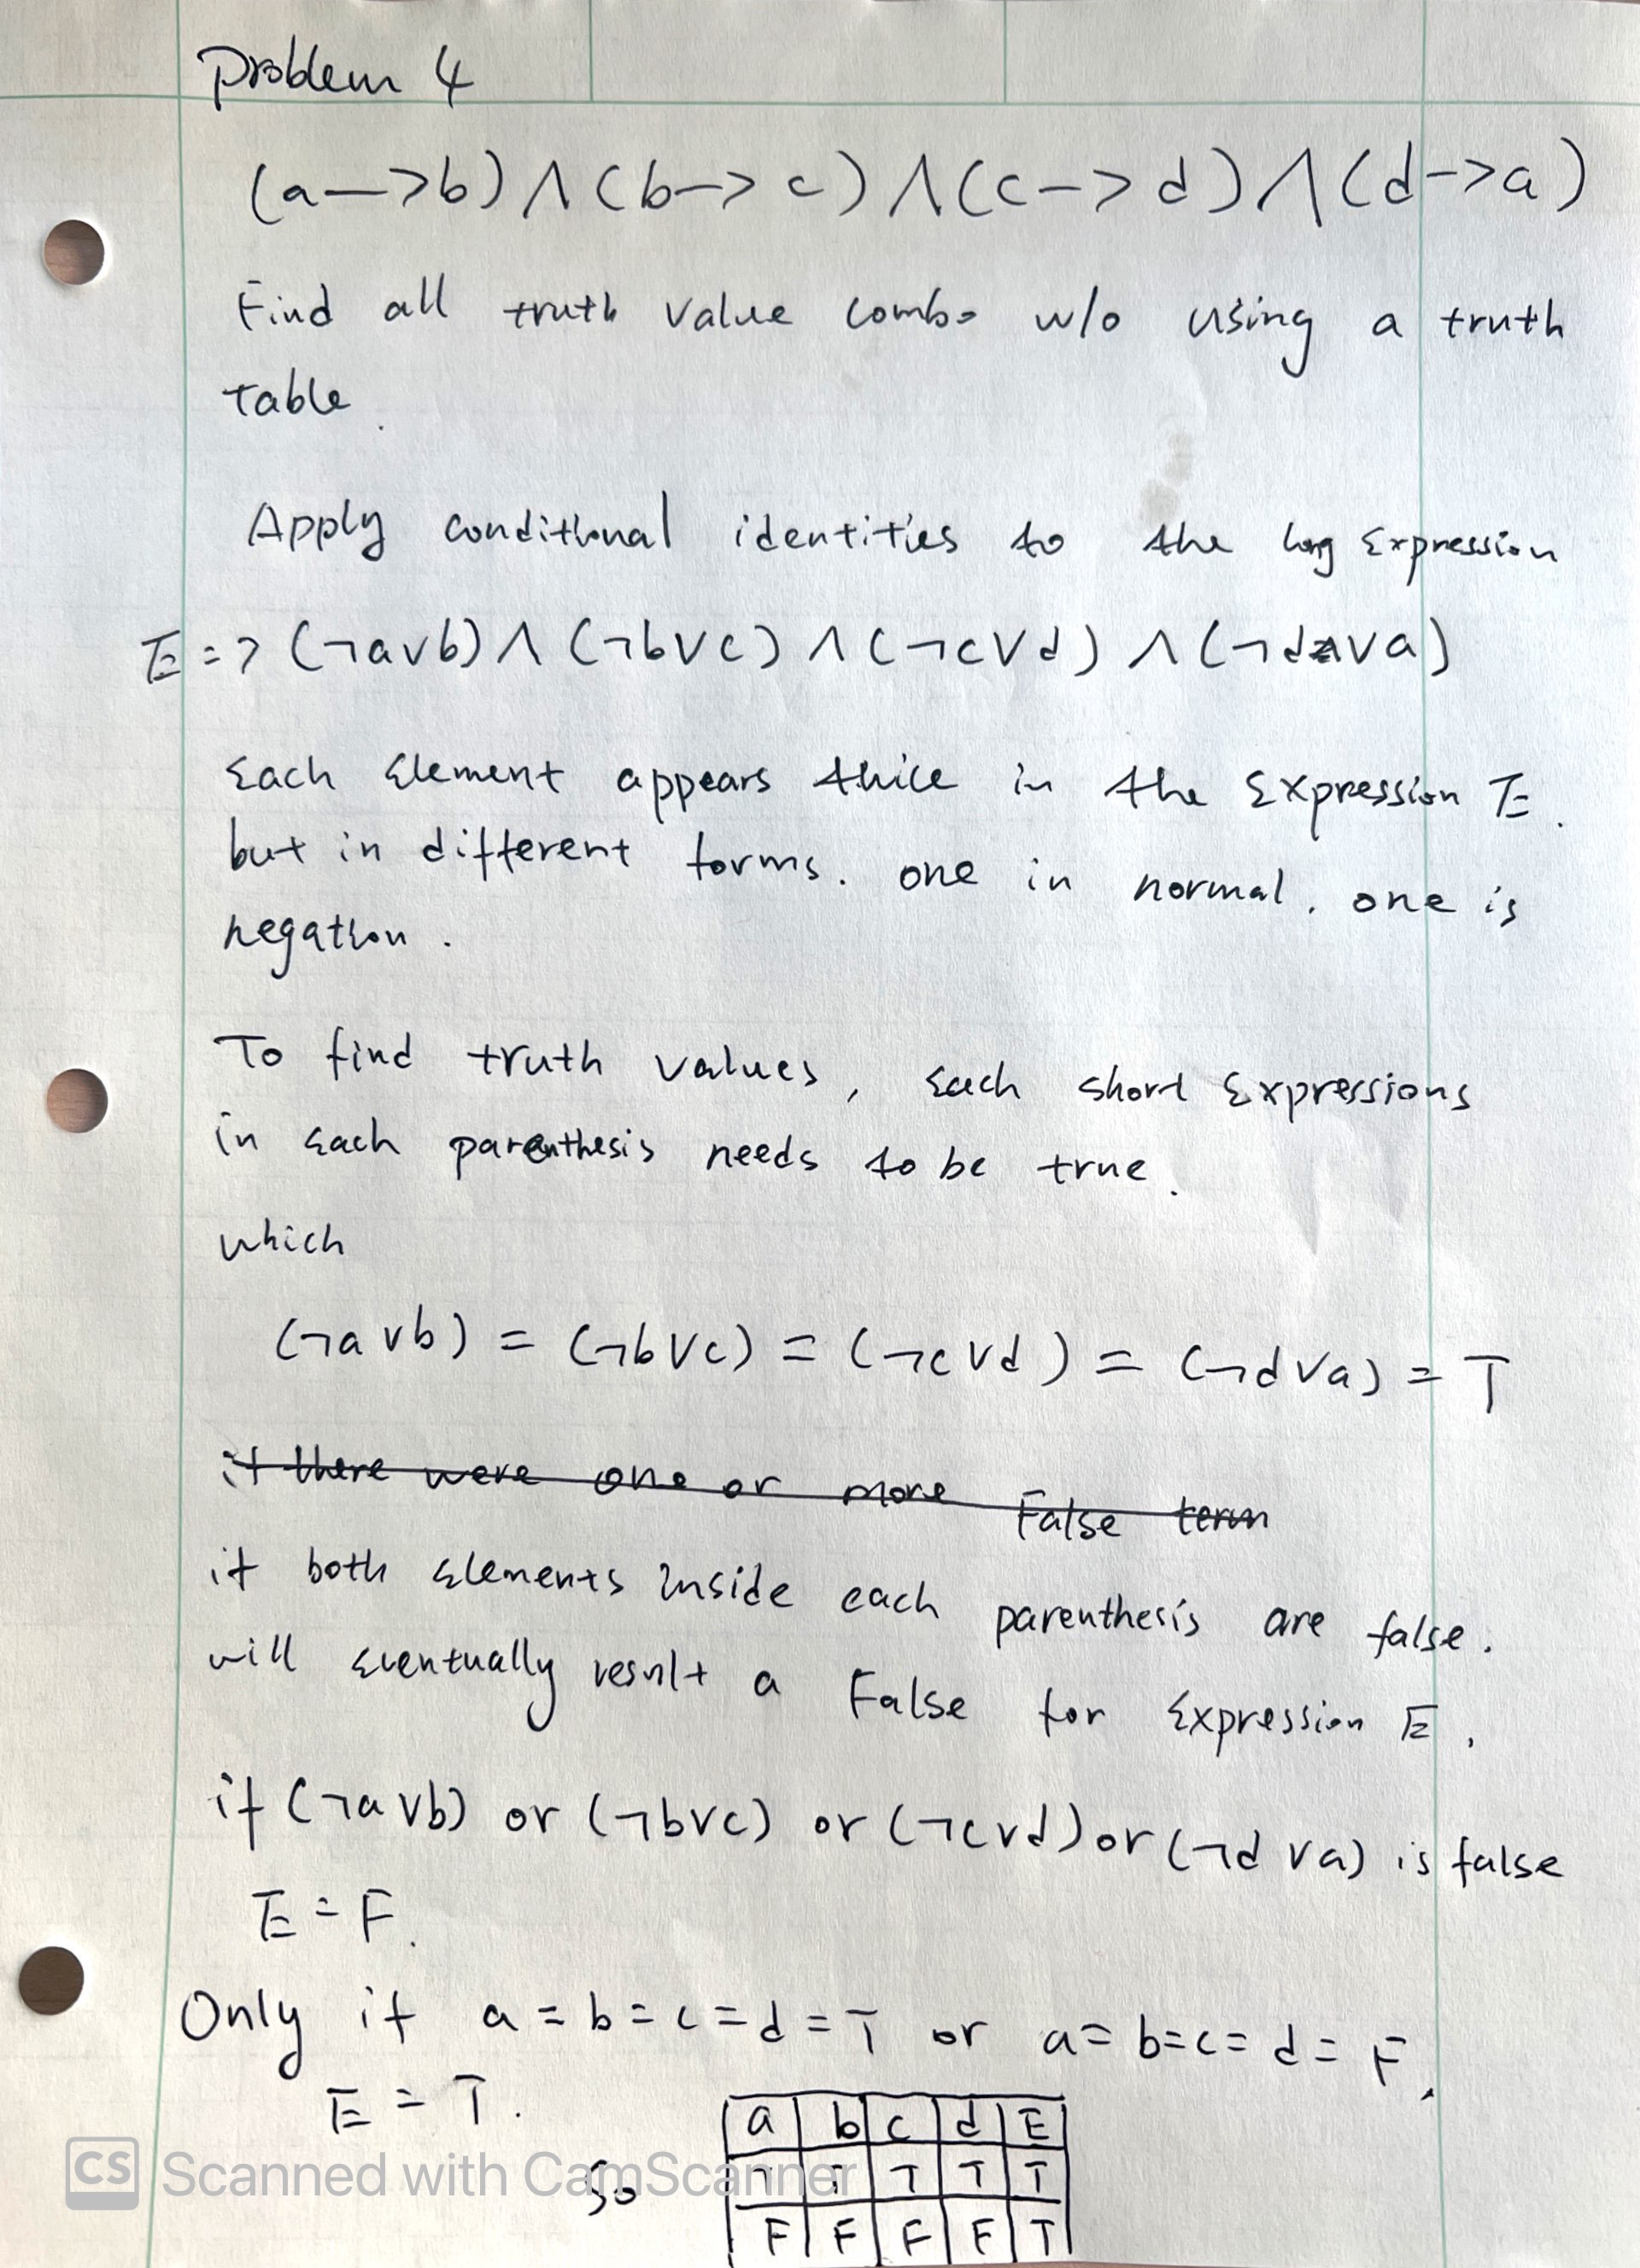 Problem 4
(a->b)∧(b->c)∧(c->d)∧(d->a)
Find all truth value combo w/o using a truth
table.
Apply conditional identities to the long Expression
E => (¬a∨b)∧(¬b∨c)∧(¬c∨d)∧(¬d∨a)
Each Element appears thice in the Expression E.
but in different forms. one in normal. one is
negation.
To find truth values, each short Expressions
in each parenthesis needs to be true.
which
(¬a∨b) = (¬b∨c) = (¬c∨d) = (¬d∨a) = T
if there were one or more False term
if both elements inside each parenthesis are false.
will eventually result a False for Expression E.
if (¬a∨b) or (¬b∨c) or (¬c∨d) or (¬d∨a) is false
E = F.
Only if a=b=c=d=T or a=b=c=d=F.
E = T.
So
a b c d E
T T T T T
F F F F T
CS Scanned with CamScanner